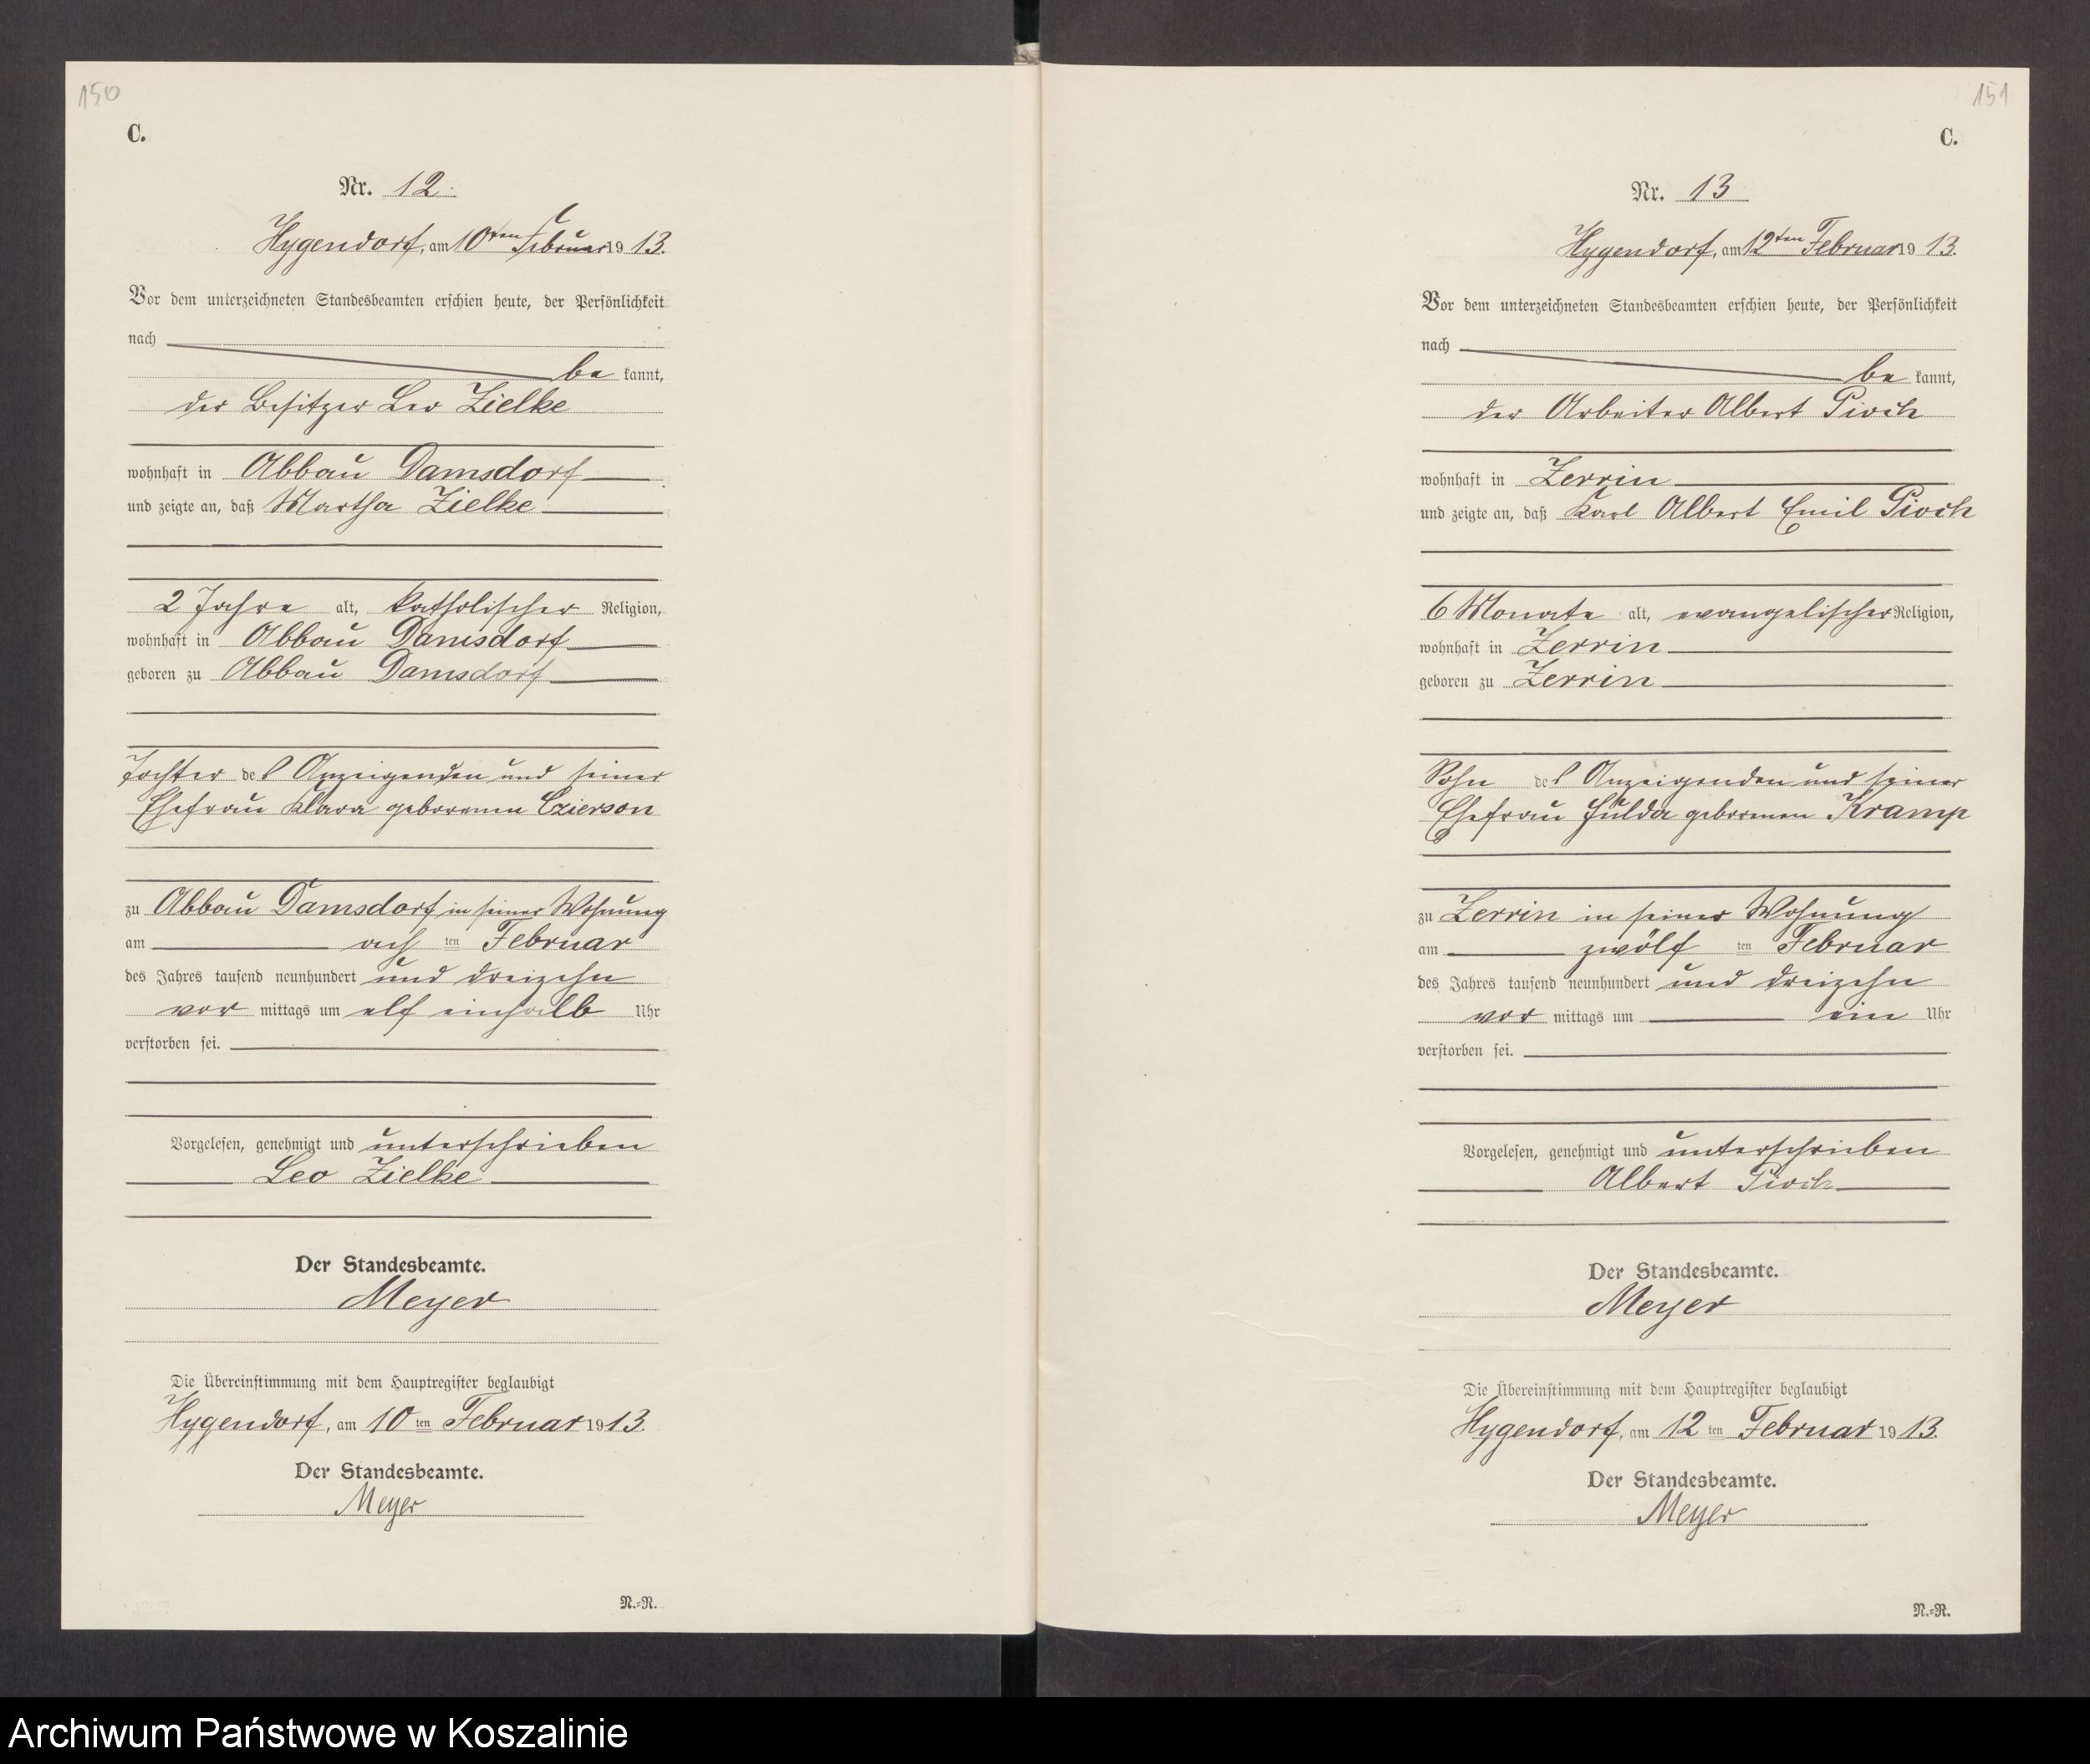 150
C.
Nr. 12.
Hygendorf, am 10ten Februar 1913.
Vor dem unterzeichneten Standesbeamten erschien heute, der Persönlichkeit
nach
be kannt,
der Besitzer Leo Zielke
wohnhaft in Abbau Damsdorf
und zeigte an, daß Martha Zielke
2 Jahre alt, katholischer Religion,
wohnhaft in Abbau Damsdorf
geboren zu Abbau Damsdorf
Tochter des Anzeigenden und seiner
Ehefrau Klara geborenen Czierson
zu Abbau Damsdorf in seiner Wohnung
am ach ten Februar
des Jahres tausend neunhundert und dreizehn
vor mittags um elf einhalb Uhr
verstorben sei.
Vorgelesen, genehmigt und unterschrieben
Leo Zielke
Der Standesbeamte.
Meyer
Die Übereinstimmung mit dem Hauptregister beglaubigt
Hygendorf, am 10 ten Februar 1913.
Der Standesbeamte.
Meyer
N.=R.
151
C.
Nr. 13
Hygendorf, am 12ten Februar 1913.
Vor dem unterzeichneten Standesbeamten erschien heute, der Persönlichkeit
nach
be kannt,
der Arbeiter Albert Pioch
wohnhaft in Zerrin
und zeigte an, daß Karl Albert Emil Pioch
6 Monate alt, evangelischer Religion,
wohnhaft in Zerrin
geboren zu Zerrin
Sohn des Anzeigenden und seiner
Ehefrau Hulda geborenen Kramp
zu Zerrin in seiner Wohnung
am zwölf ten Februar
des Jahres tausend neunhundert und dreizehn
vor mittags um ein Uhr
verstorben sei.
Vorgelesen, genehmigt und unterschrieben
Albert Pioch
Der Standesbeamte.
Meyer
Die Übereinstimmung mit dem Hauptregister beglaubigt
Hygendorf, am 12 ten Februar 1913.
Der Standesbeamte.
Meyer
N.=R.
Archiwum Państwowe w Koszalinie